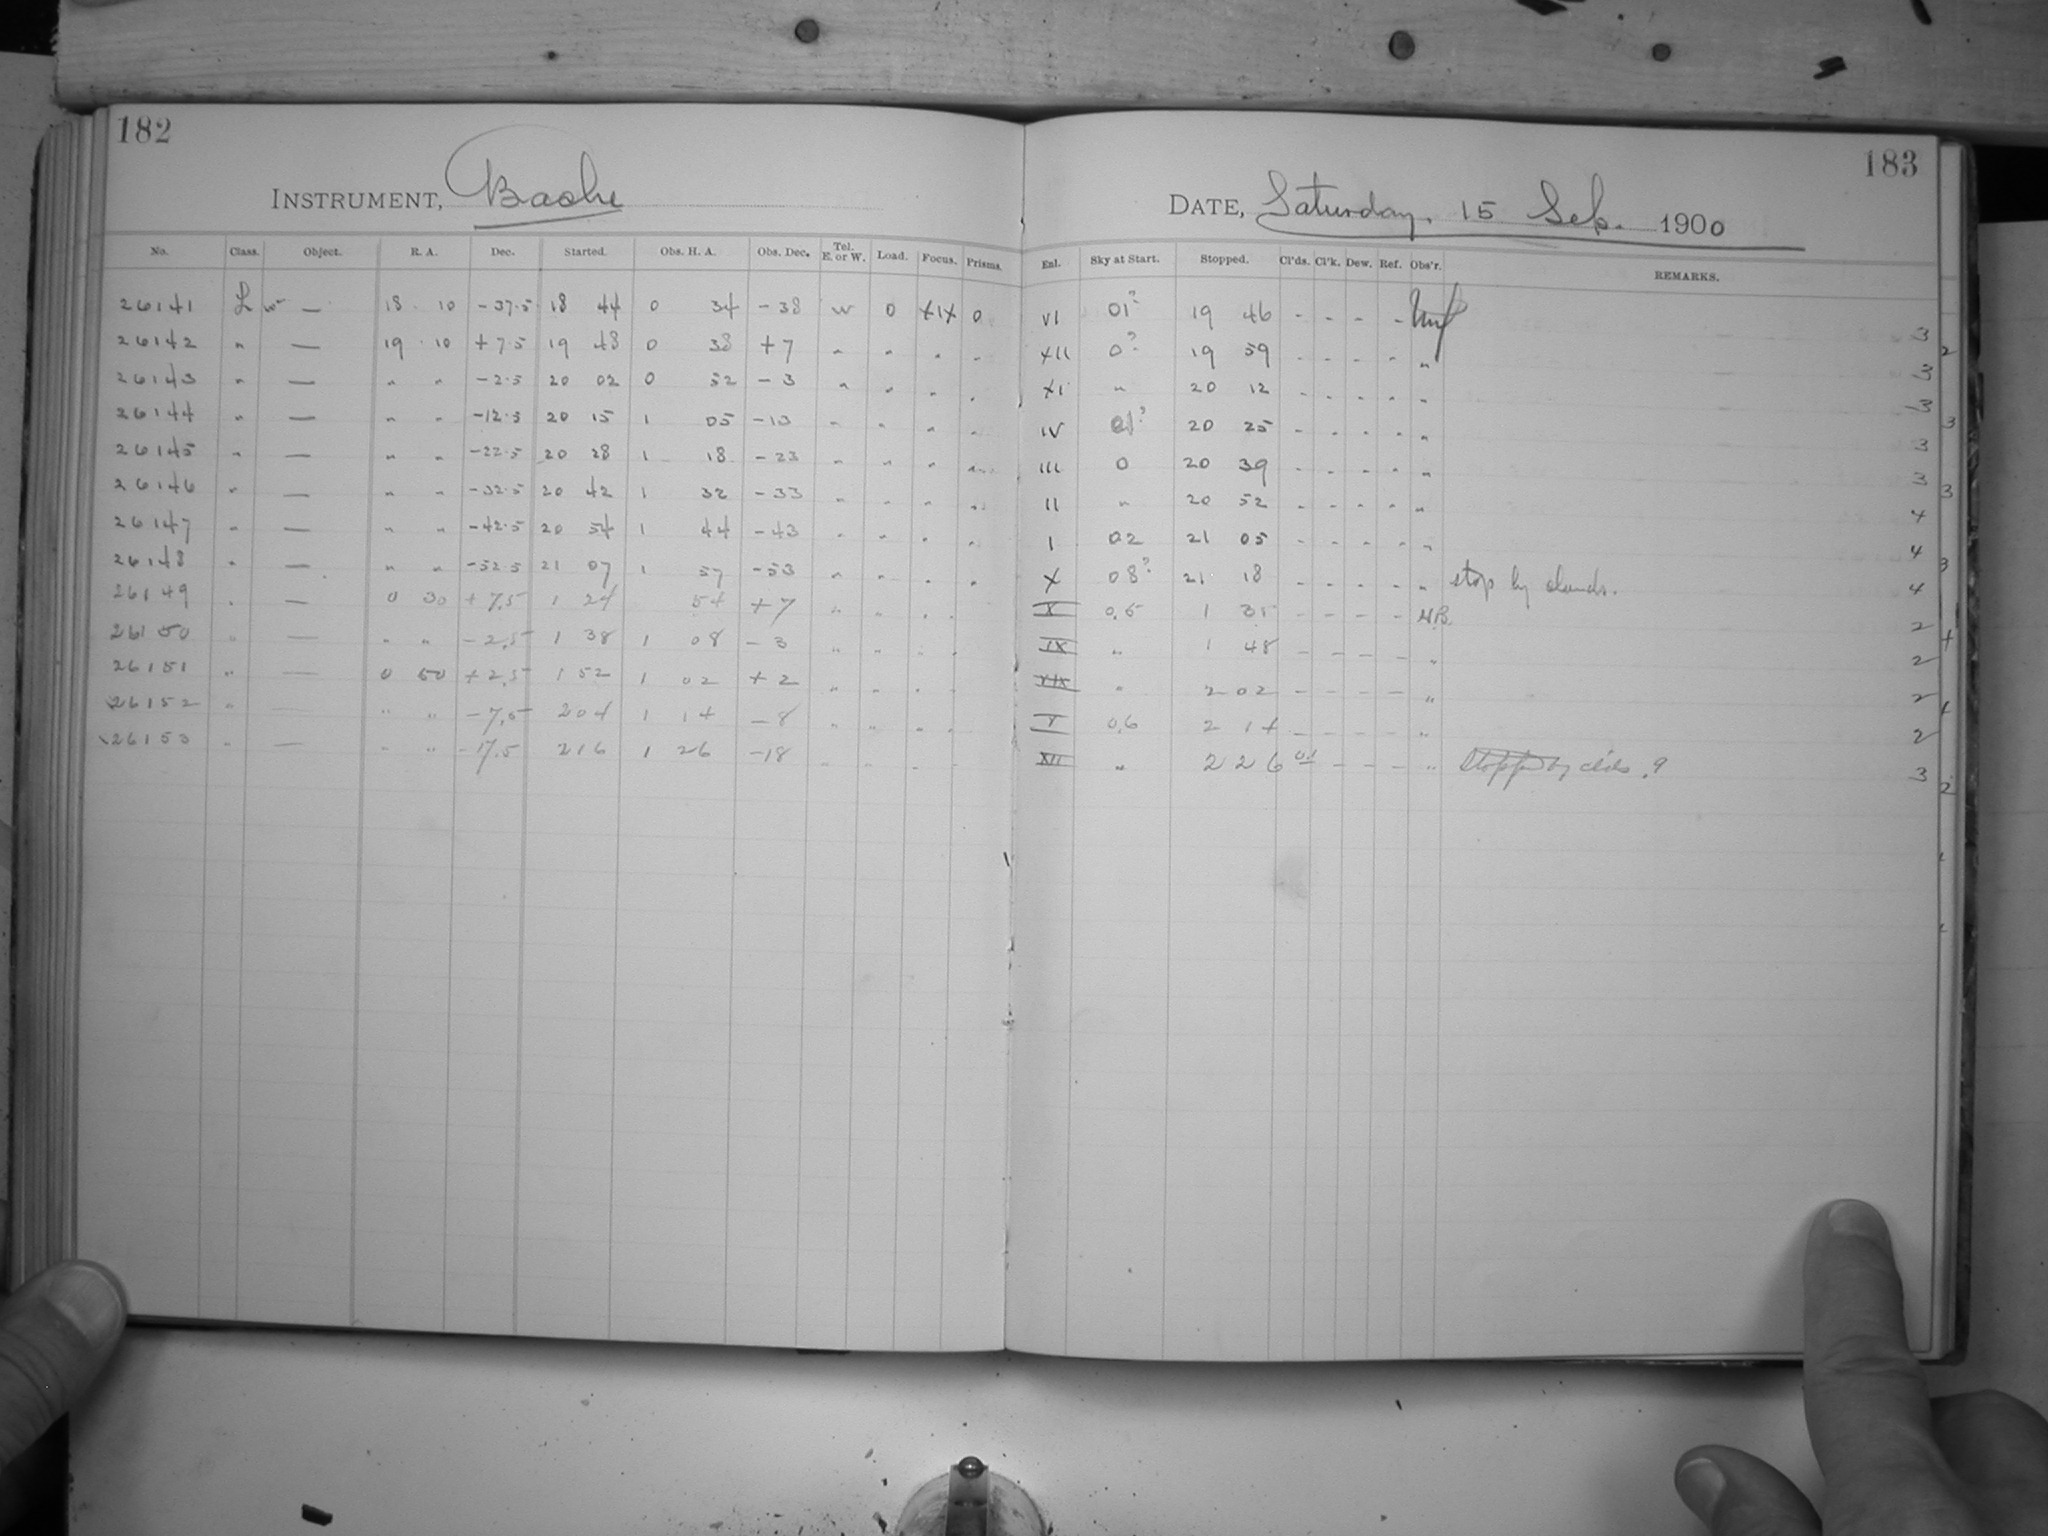 182
INSTRUMENT, Bache
No. Class. Object. R. A. Dec. Started. Obs. H. A. Obs. Dec. Tel. E. or W. Load. Focus. Prisms.
26141 L — 18 10 -37.5 18 44 0 34 -38 W 0 XIX 0
26142 " — 19 10 +7.5 19 48 0 38 +7 " " " "
26143 " — " " -2.5 20 02 0 52 -3 " " " "
26144 " — " " -12.5 20 15 1 05 -13 " " " "
26145 " — " " -22.5 20 28 1 18 -23 " " " "
26146 " — " " -32.5 20 42 1 32 -33 " " " "
26147 " — " " -42.5 20 54 1 44 -43 " " " "
26148 " — " " -52.5 21 07 1 57 -53 " " " "
26149 " — 0 30 +7.5 1 24 54 +7 " " " "
26150 " — " " -2.5 1 38 1 08 -3 " " " "
26151 " — 0 50 +2.5 1 52 1 02 +2 " " " "
26152 " — " " -7.5 2 04 1 14 -8 " " " "
26153 " — " " -17.5 2 16 1 26 -18 " " " "
183
DATE, Saturday, 15 Sep. 1900
Enl. Sky at Start. Stopped. Cl'ds. Cl'k. Dew. Ref. Obs'r. REMARKS.
VI 01? 19 46 - - - - 3
XII 0? 19 59 - - - - " 3
XI " 20 12 - - - - " 3
IV 01? 20 25 - - - - " 3
III 0 20 39 - - - - " 3
II " 20 52 - - - - " 4
I 02 21 05 - - - - " 4
X 08? 21 18 - - - - " stop by clouds. 4
X 0.5 1 35 - - - - 2
IX " 1 48 - - - - " 2
XIX " 2 02 - - - - " 2
V 0.6 2 14 - - - - " 2
XII " 2 26 - - - " Stopped by clds. ? 3